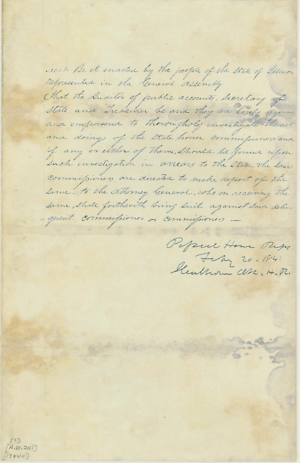 sect Be it enacted by the people of the State of Illinois
represented in the General Assembly
That the Auditor of public accounts, Secretary of
State and Treasurer be and they are hereby
and empowered to thoroughly investigate the
and doings of the State house commissioners and
if any or either of them should be found upon
such investigation in arrears to the State, the
commissioners are directed to make report of the
same to the Attorney General, who on receiving the
same shall forthwith bring suit against said delin
quent commissioner or commissioners —
House Reps
Feby 20. 1841
H. R.